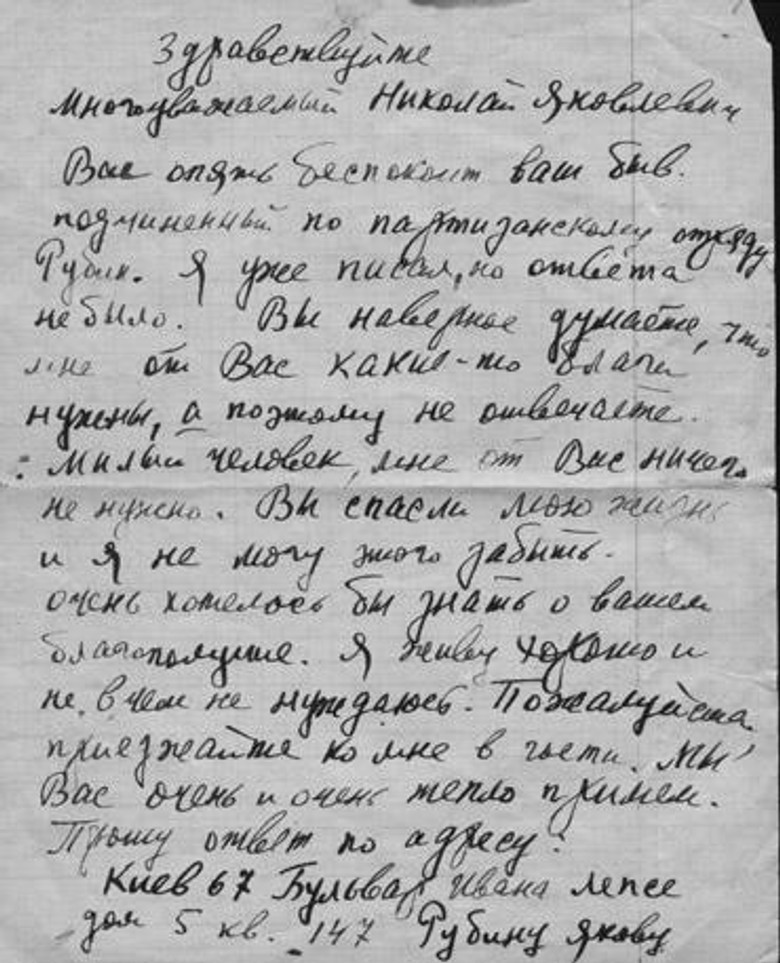 Здравствуйте
многоуважаемый Николай Яковлевич
Вас опять беспокоит ваш быв.
подчиненный по партизанскому отряду
Рубин. Я уже писал, но ответа
не было. Вы наверное думаете, что
мне от Вас какие-то блага
нужны, а поэтому не отвечаете.
Милый человек, мне от Вас ничего
не нужно. Вы спасли мою жизнь
и я не могу этого забыть.
очень хотелось бы знать о вашем
благополучие. Я живу хорошо и
не в чем не нуждаюсь. Пожалуйста
приезжайте ко мне в гости. Мы
Вас очень и очень тепло примем.
Прошу ответ по адресу:
Киев 67 Бульвар Ивана Лепсе
дом 5 кв. 147 Рубину Якову